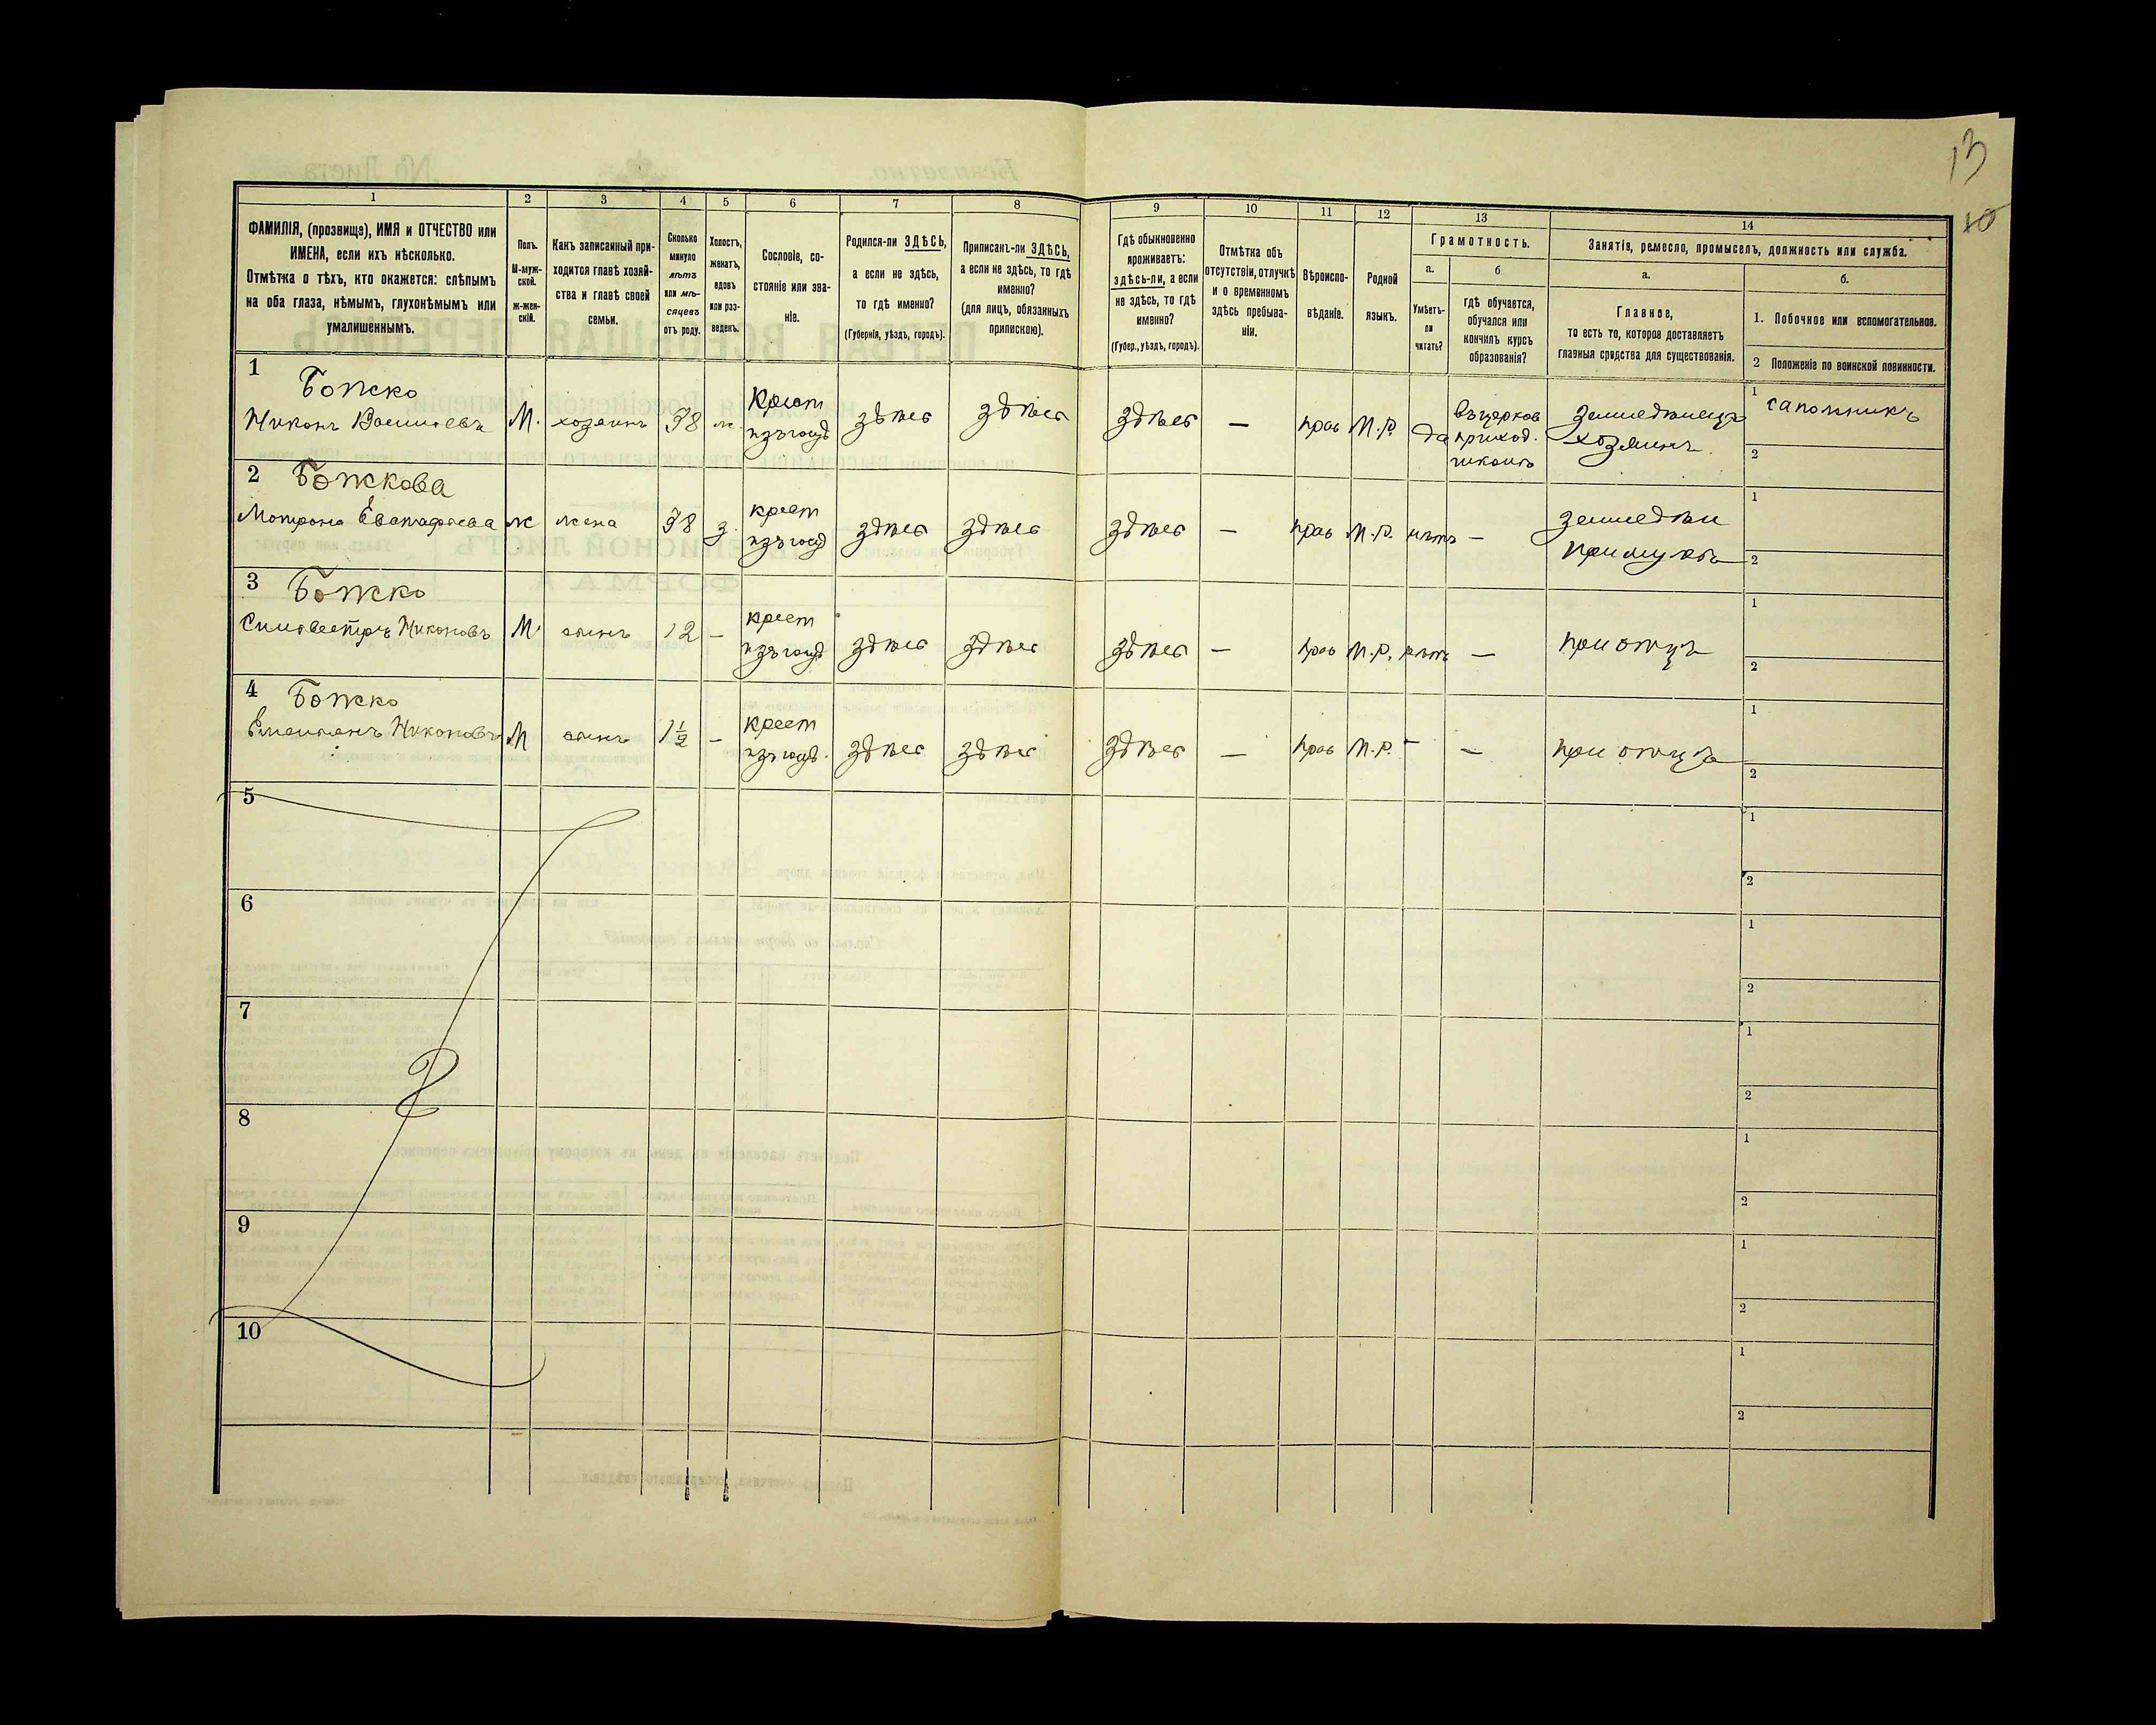 13
10
1
2
3
4
5
6
7
8
9
10
11
12
13
14
ФАМИЛІЯ, (прозвище), ИМЯ и ОТЧЕСТВО или
ИМЕНА, если ихъ нѣсколько.
Отмѣтка о тѣхъ, кто окажется: слѣпымъ
на оба глаза, нѣмымъ, глухонѣмымъ или
умалишеннымъ.
Полъ.
М-муж-
ской.
ж-жен-
скій.
Какъ записанный при-
ходится главѣ хозяй-
ства и главѣ своей
семьи.
Сколько
минуло
лѣтъ
или мѣ-
сяцевъ
отъ роду.
Холостъ,
женатъ,
вдовъ
или раз-
веденъ.
Сословіе, со-
стояніе или зва-
ніе.
Родился-ли ЗДѢСЬ,
а если не здѣсь,
то гдѣ именно?
(Губернія, уѣздъ, городъ).
Приписанъ-ли ЗДѢСЬ,
а если не здѣсь, то гдѣ
именно?
(для лицъ, обязанныхъ
припискою).
Гдѣ обыкновенно
проживаетъ:
здѣсь-ли, а если
не здѣсь, то гдѣ
именно?
(Губер., уѣздъ, городъ).
Отмѣтка объ
отсутствіи, отлучкѣ
и о временномъ
здѣсь пребыва-
ніи.
Вѣроиспо-
вѣданіе.
Родной
языкъ.
Грамотность.
а.
Умѣетъ-
ли
читать?
б.
гдѣ обучается,
обучался или
кончилъ курсъ
образованія?
Занятія, ремесло, промыселъ, должность или служба.
а.
Главное,
то есть то, которое доставляетъ
главныя средства для существованія.
б.
1. Побочное или вспомогательное.
2 Положеніе по воинской повинности.
1
Божко
Никонъ Васильевъ
М.
хозяинъ
38
ж.
крест
изъ госуд
здѣсь
здѣсь
здѣсь
—
прав
М.Р.
да
въ церков
приход.
школѣ
Земледѣлецъ
хозяинъ.
1 сапожникъ
2
2 Божкова
Мотрона Евстафіева
ж
жена
38
з.
крест
изъ госуд
здѣсь
здѣсь
здѣсь
—
прав
М.Р.
нѣтъ
—
земледѣл
при мужѣ
1
2
3 Божко
Сильвестръ Никоновъ
М.
сынъ
12
—
крест
изъ госуд
здѣсь
здѣсь
здѣсь
—
прав
М.Р.
нѣтъ
—
при отцѣ
1
2
4 Божко
Емельянъ Никоновъ
М
сынъ
1½
—
крест
изъ госуд.
здѣсь
здѣсь
здѣсь
—
прав
М.Р.
—
—
при отцѣ
1
2
5
1
2
6
1
2
7
1
2
8
1
2
9
1
2
10
1
2